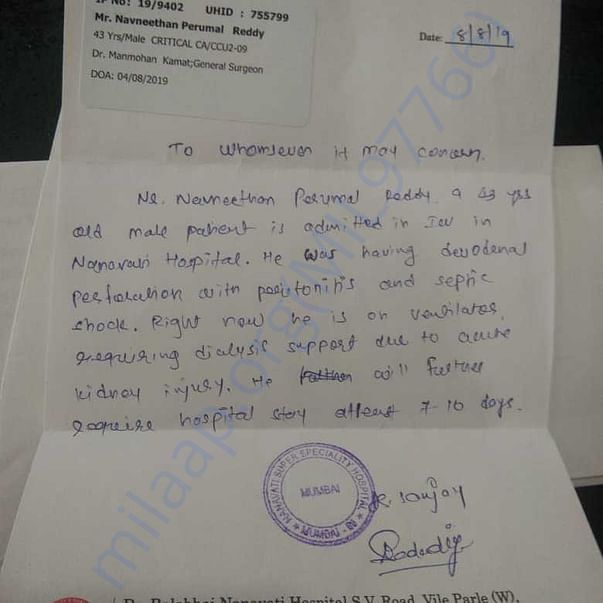 IP No: 19/9402 UHID : 755799
Mr. Navneethan Perumal Reddy
43 Yrs/Male CRITICAL CA/CCU2-09
Dr. Manmohan Kamat;General Surgeon
DOA: 04/08/2019
Date: 8/8/19
To whomsoever it may concern.
Mr. Navneethan Perumal Reddy, a 43 yrs
old male patient is admitted in ICU in
Nanavati Hospital. He was having duodenal
perforation with peritonitis and septic
shock. Right now he is on ventilator,
requiring dialysis support due to acute
kidney injury. He will further
require hospital stay atleast 7-10 days.
NANAVATI SUPER SPECIALITY HOSPITAL
MUMBAI
Dr. Sanjay
Dr. Balabhai Nanavati Hospital S.V. Road, Vile Parle (W),
milaap.org(MI_97766)